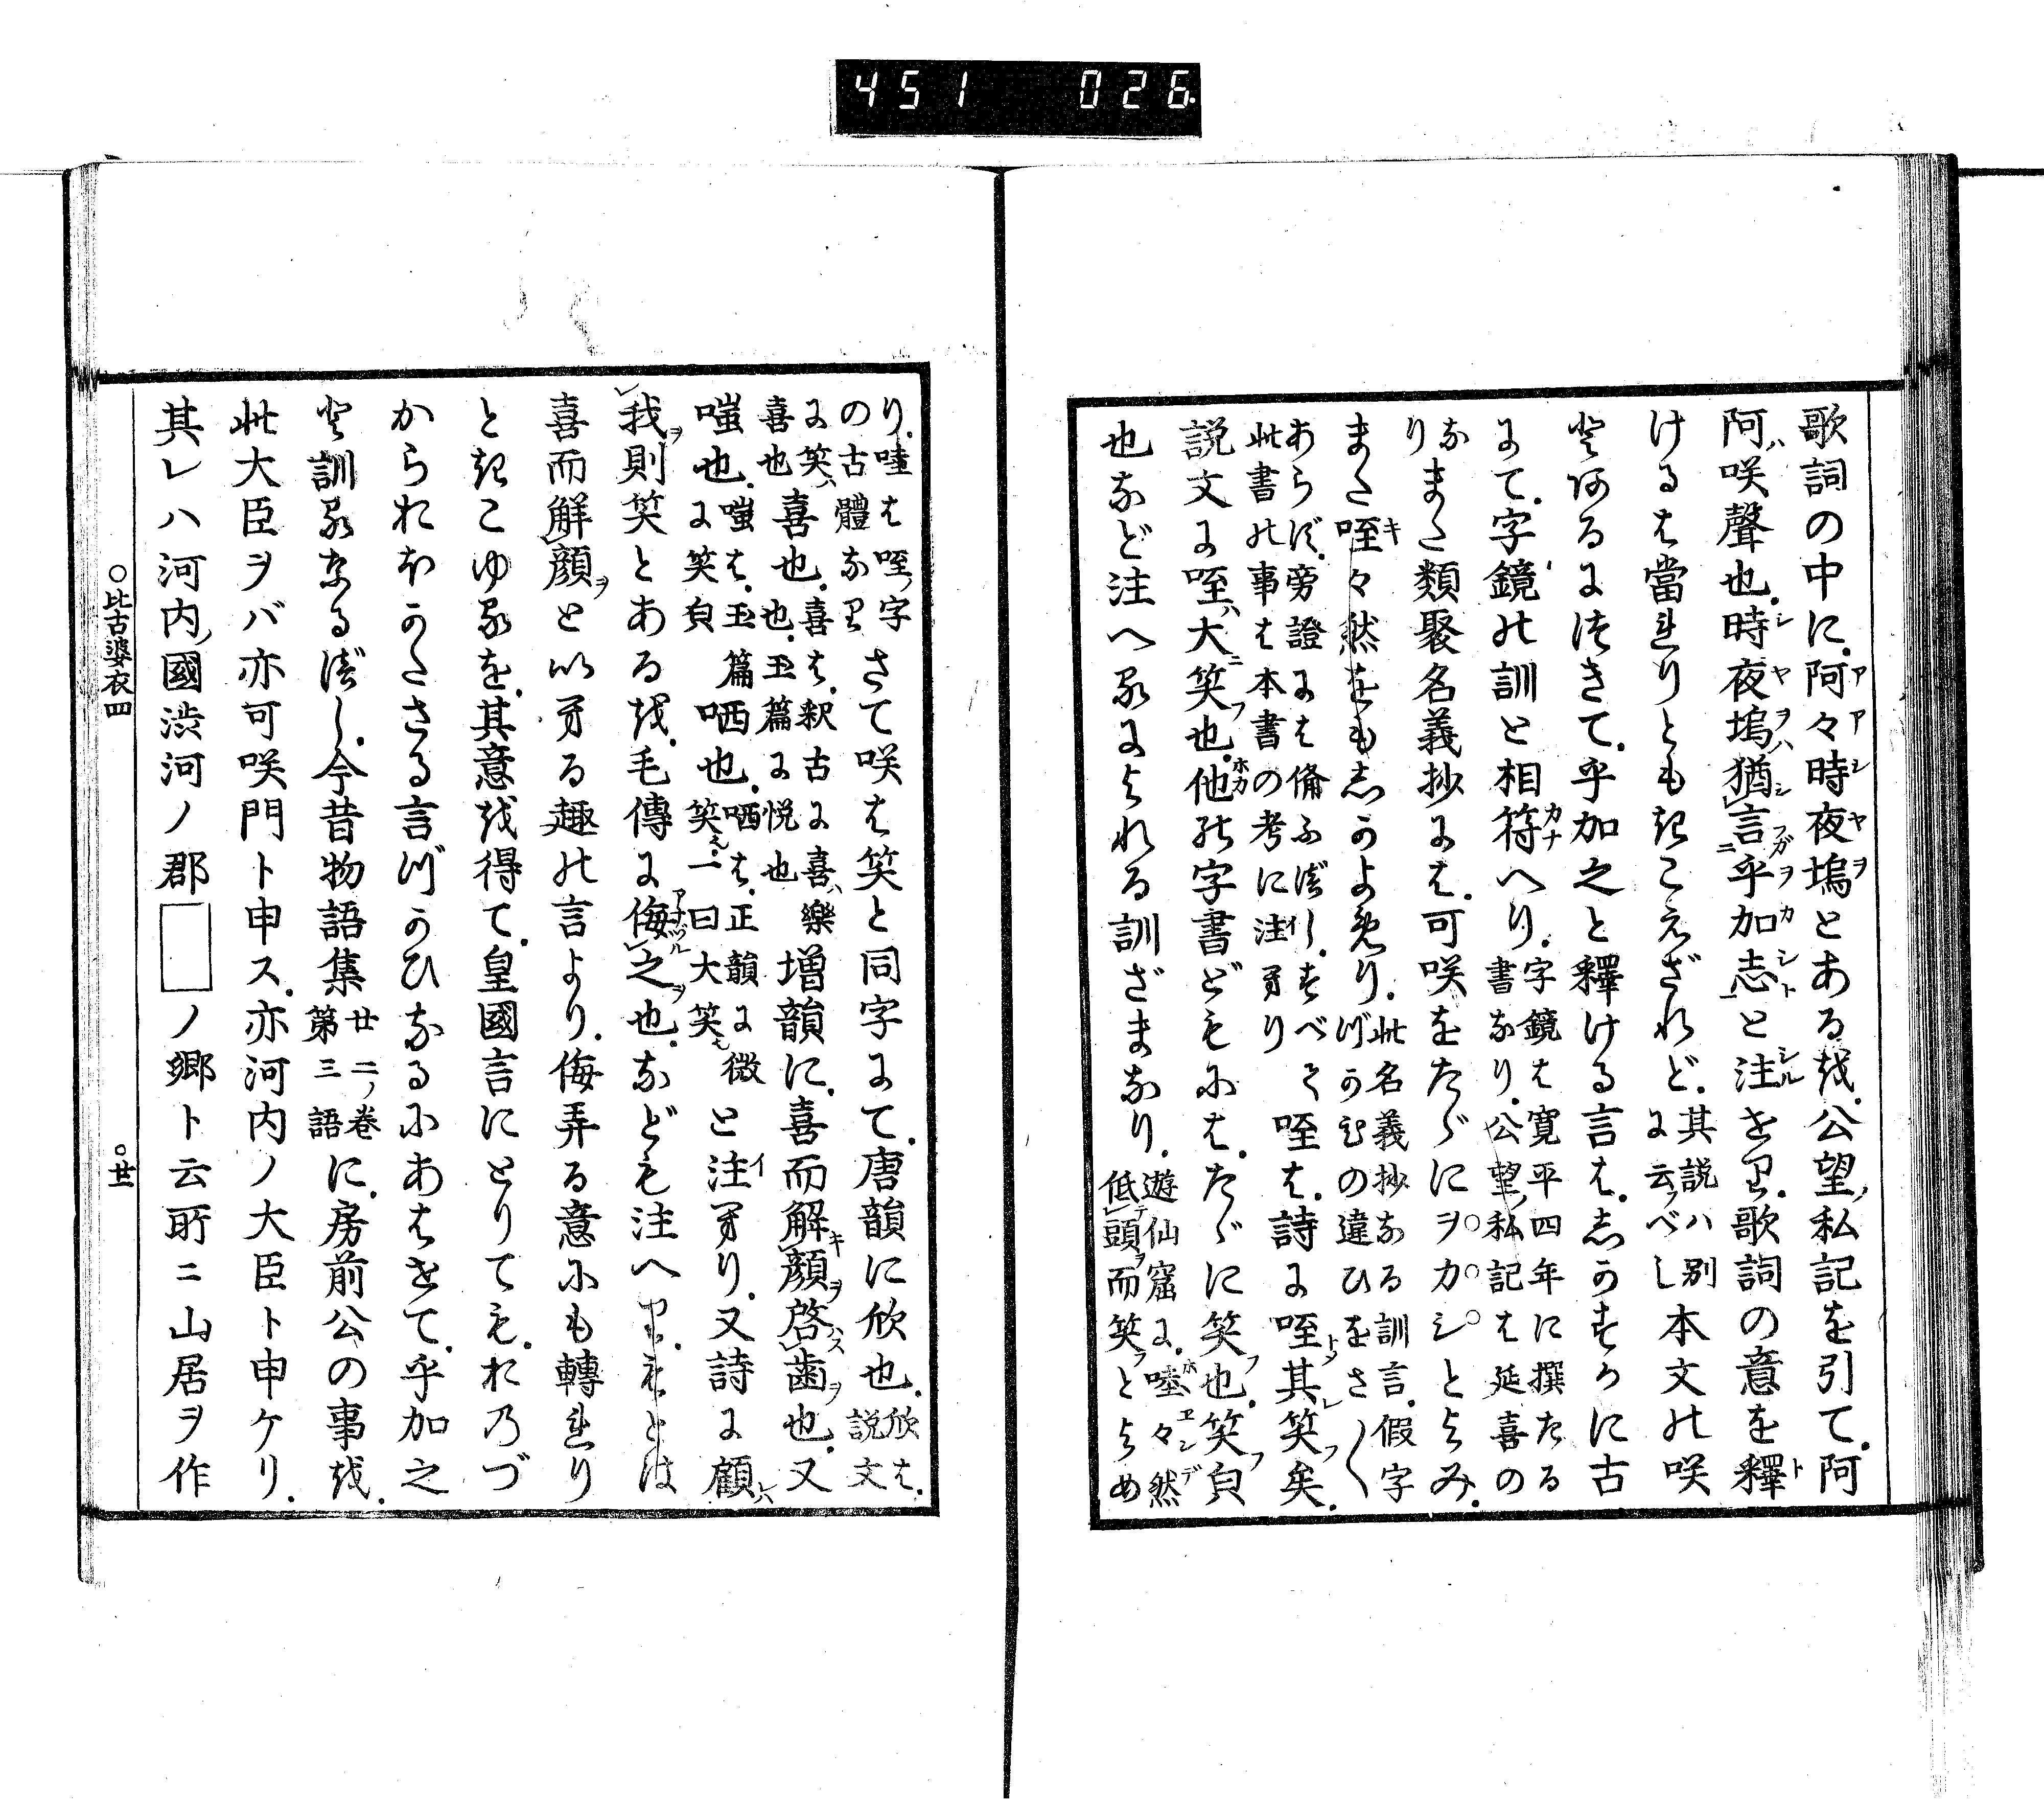 451 026
歌詞の中に阿々時夜塢とある越公望ノ私記を引て阿
阿ハ咲聲也時夜塢猶言乎加志と注せり歌詞の意を釋
ける者當れりとも起こえざれど其説ハ別に云フべし本文能咲
登阿るにつきて乎加之と釋ける言は志かすがに古
にて字鏡能訓と相符へり字鏡は寛平四年に撰たる書なり公望ノ私記は延喜の
なりまた類聚名義抄には可咲をたゞにヲカシとよみ
また咥々然をも志かよめり此名義抄なる訓言假字づかひの違ひをさ〳〵
あらず旁證には備ふべしすべて此書能事は本書の考に注せり咥は詩に咥其笑矣
説文に咥ハ大笑也他能字書どもには たゞに笑也笑皃
也など注へるによれる訓ざまなり遊仙窟に嘊々然低頭而笑フとよめ
り嘊は咥ノ字の古體なりさて咲は笑と同字にて唐韻に欣也欣は説文
に笑喜也喜也喜は釈古に喜ハ樂也玉篇に悦也増韻に喜而解顔啓歯也又
嗤也嗤は玉篇に笑皃哂也哂は正韻に微笑一曰大笑と注せり又詩に顧
我則笑とある越毛傳に侮之也なども注へり
喜而解顔と以へる趣能言より侮弄る意にも轉れり
と起こゆるを其意越得て皇國言にとりてもおのづ
からおかたさる言づかひなるにあはせて乎加之
登訓るなるべし今昔物語集廿二ノ巻第三語に房前公の事越
此大臣ヲバ亦可咲門ト申ス亦河内ノ大臣ト申ケリ
其レハ河内ノ國渋河ノ郡□ノ郷ト云所ニ山居ヲ作
○比古婆衣四